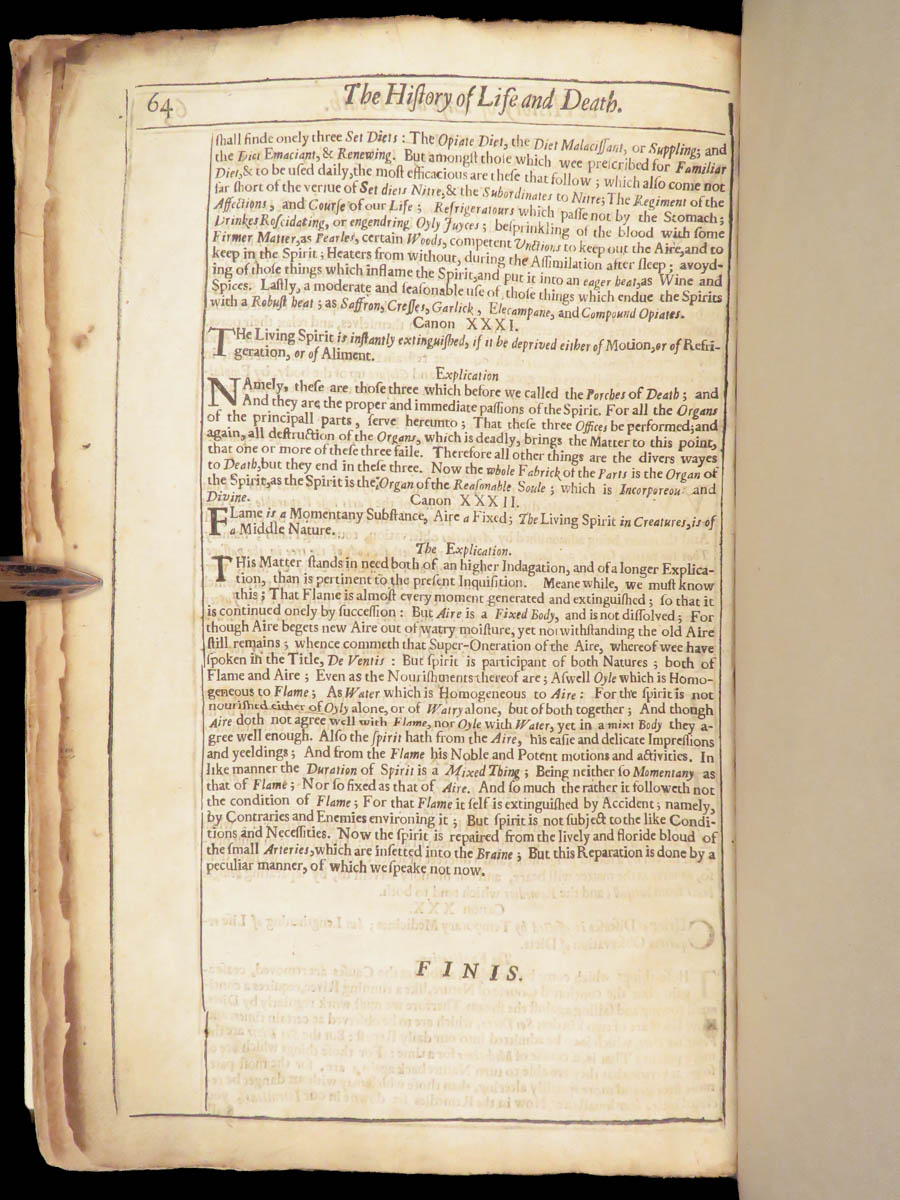 64
The Hiſtory of Life and Death.
ſhall finde onely three Set Diets : The Opiate Diet, the Diet Malaciſſant, or Suppling; and
the Diet Emaciant, & Renewing. But amongſt thoſe which wee preſcribed for Familiar
Diet, & to be uſed daily, the moſt efficacious are theſe that follow ; which alſo come not
far ſhort of the vertue of Set diets Nitre, & the Subordinates to Nitre; The Regiment of the
Affections, and Courſe of our Life ; Refrigeratours which paſſe not by the Stomach;
Drinkes Roſcidating, or engendring Oyly Juyces ; beſprinkling of the blood with ſome
Firmer Matter, as Pearles, certain Woods, competent Unctions to keep out the Aire, and to
keep in the Spirit ; Heaters from without, during the Aſſimilation after ſleep ; avoyd-
ing of thoſe things which inflame the Spirit, and put it into an eager heat, as Wine and
Spices. Laſtly, a moderate and ſeaſonable uſe of thoſe things which endue the Spirits
with a Robuſt heat ; as Saffron, Creſſes, Garlick, Elecampane, and Compound Opiates.
Canon XXXI.
THe Living Spirit is inſtantly extinguiſhed, if it be deprived either of Motion, or of Refri-
geration, or of Aliment.
Explication
NAmely, theſe are thoſe three which before we called the Porches of Death ; and
And they are the proper and immediate paſſions of the Spirit. For all the Organs
of the principall parts, ſerve hereunto ; That theſe three Offices be performed; and
again, all deſtruction of the Organs, which is deadly, brings the Matter to this point,
that one or more of theſe three faile. Therefore all other things are the divers wayes
to Death, but they end in theſe three. Now the whole Fabrick of the Parts is the Organ of
the Spirit, as the Spirit is the Organ of the Reaſonable Soule ; which is Incorporeou and
Divine.
Canon XXXII.
FLame is a Momentany Subſtance, Aire a Fixed; The Living Spirit in Creatures, is of
a Middle Nature.
The Explication.
THis Matter ſtands in need both of an higher Indagation, and of a longer Explica-
tion, than is pertinent to the preſent Inquiſition. Meane while, we muſt know
this ; That Flame is almoſt every moment generated and extinguiſhed ; ſo that it
is continued onely by ſucceſſion : But Aire is a Fixed Body, and is not diſſolved ; For
though Aire begets new Aire out of watry moiſture, yet notwithſtanding the old Aire
ſtill remains ; whence commeth that Super-Oneration of the Aire, whereof wee have
ſpoken in the Title, De Ventis : But ſpirit is participant of both Natures ; both of
Flame and Aire ; Even as the Nouriſhments thereof are ; Aſwell Oyle which is Homo-
geneous to Flame ; As Water which is Homogeneous to Aire : For the ſpirit is not
nouriſhed either of Oyly alone, or of Watry alone, but of both together ; And though
Aire doth not agree well with Flame, nor Oyle with Water, yet in a mixt Body they a-
gree well enough. Alſo the ſpirit hath from the Aire, his eaſie and delicate Impreſſions
and yeeldings ; And from the Flame his Noble and Potent motions and activities. In
like manner the Duration of Spirit is a Mixed Thing ; Being neither ſo Momentany as
that of Flame ; Nor ſo fixed as that of Aire. And ſo much the rather it followeth not
the condition of Flame ; For that Flame it ſelf is extinguiſhed by Accident ; namely,
by Contraries and Enemies environing it ; But ſpirit is not ſubject to the like Condi-
tions and Neceſſities. Now the ſpirit is repaired from the lively and floride bloud of
the ſmall Arteries, which are inſetted into the Braine ; But this Reparation is done by a
peculiar manner, of which we ſpeake not now.
FINIS.